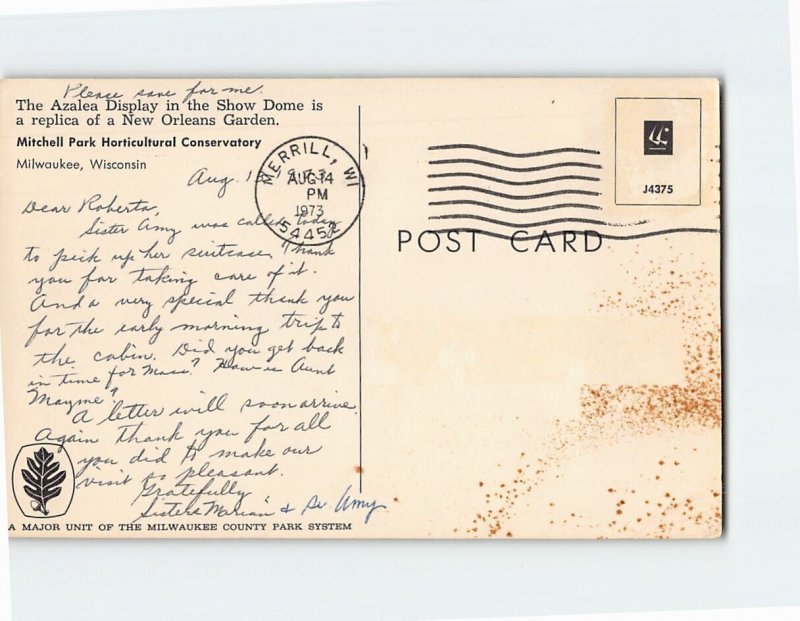 Please save for me.
The Azalea Display in the Show Dome is
a replica of a New Orleans Garden.
Mitchell Park Horticultural Conservatory
Milwaukee, Wisconsin
Aug. 1
Dear Roberta,
Sister Amy was called today
to pick up her suitcase. Thank
you for taking care of it.
And a very special thank you
for the early morning trip to
the cabin. Did you get back
in time for Mass? How is Aunt
Mayme?
A letter will soon arrive.
Again thank you for all
you did to make our
visit so pleasant.
Gratefully
Sisters Marian & Sr. Amy
A MAJOR UNIT OF THE MILWAUKEE COUNTY PARK SYSTEM
MERRILL, WI
AUG 14
PM
1973
54452
J4375
POST CARD